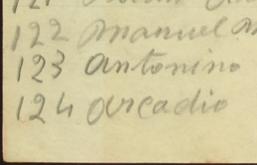 121
122 Manuel
123 Antonino
124 Arcadio